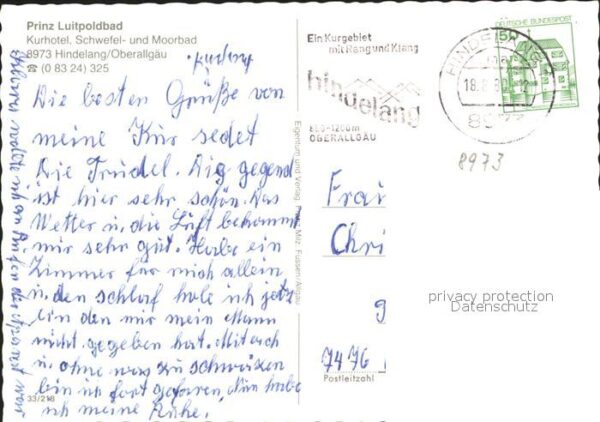 Prinz Luitpoldbad
Kurhotel, Schwefel- und Moorbad
8973 Hindelang/Oberallgäu
☎ (0 83 24) 325
Die besten Grüße von
meine Kur sedet
Die Trudel. Dig gegend
ist hier sehr schön. Das
Wetter u. die Luft bekommt
mir sehr gut. Habe ein
Zimmer für mich allein
u. den schlaf hole ich jetz
ein den mir mein Mann
nicht gegeben hat. Mit euch
u. ohne was zu schwäzen
bin ich fort gefaren, Nun habe
ich meine Ruhe.
33/218
Eigentum und Verlag Franz Milz, Füssen/Allgäu
Ein Kurgebiet
mit Rang und Klang
hindelang
850-1200m
OBERALLGÄU
HINDELANG
18.8.80-12
8973
DEUTSCHE BUNDESPOST
8973
Frau
Chri
9
7476
Postleitzahl
privacy protection
Datenschutz